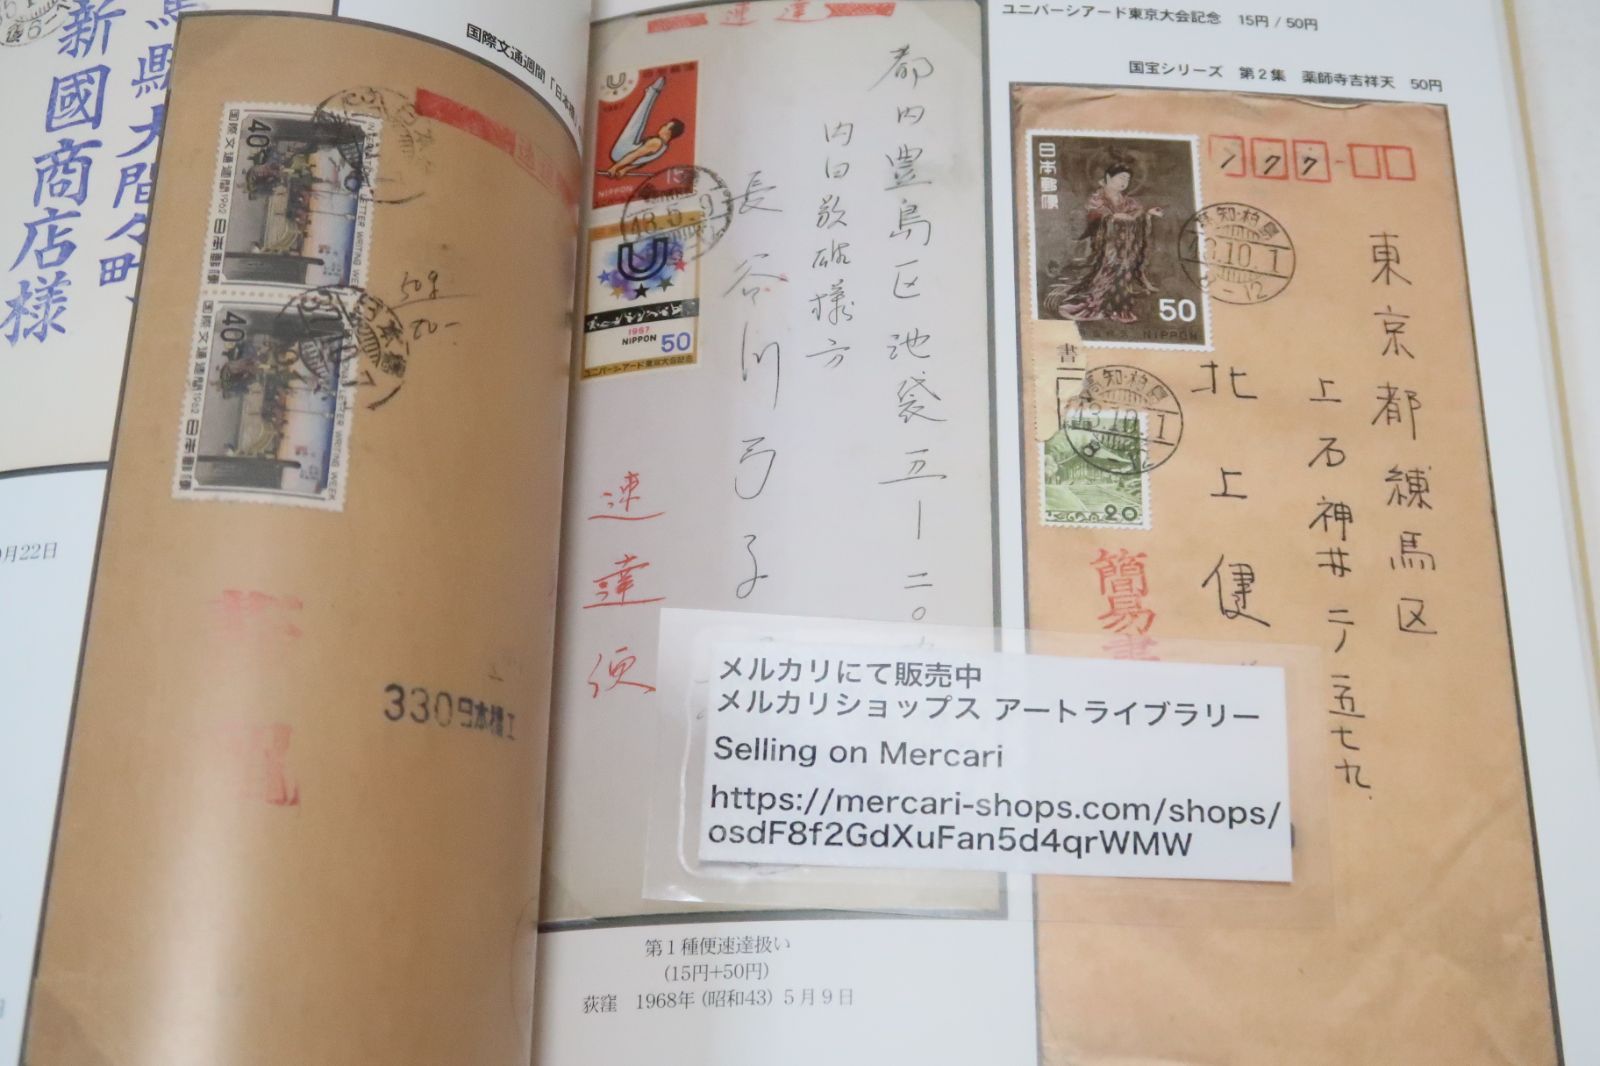 馬縣大間々町
新國商店様
月22日
国際文通週間「日本橋」
国際文通週間1962 日本郵便
40
INTERNATIONAL LETTER WRITING WEEK
国際文通週間1962 日本郵便
40
LETTER WRITING WEEK
50g
80-
330日本橋 I
速達
ユニバーシアード東京大会記念 15円 / 50円
U
1967
15
NIPPON
43.5.9
U
1967
NIPPON 50
ユニバーシアード東京大会記念
都内豊島区池袋五ー二〇
長谷川弓子
速達便
第1種便速達扱い
(15円+50円)
荻窪 1968年 (昭和43) 5月9日
国宝シリーズ 第2集 薬師寺吉祥天 50円
日本郵便
50
NIPPON
177-
高知・柏島
43.10.1
8-12
書
高知・柏島
43.10.1
20
簡易書
東京都練馬区
上石神井二ノ五七九
北上健
メルカリにて販売中
メルカリショップス アートライブラリー
Selling on Mercari
https://mercari-shops.com/shops/
osdF8f2GdXuFan5d4qrWMW